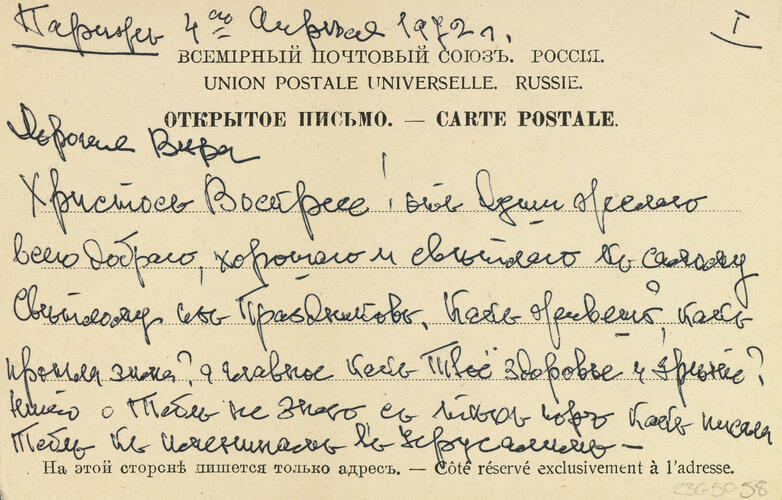 Парижъ 4го Апрѣля 1972 г. I
ВСЕМІРНЫЙ ПОЧТОВЫЙ СОЮЗЪ. РОССІЯ.
UNION POSTALE UNIVERSELLE. RUSSIE.
ОТКРЫТОЕ ПИСЬМО. — CARTE POSTALE.
Дорогая Вѣра
Христосъ Воскресе! отъ Души желаю
всего добраго, хорошаго и свѣтлаго къ самому
Свѣтлому изъ Праздниковъ. Какъ живешь, какъ
прошла зима? а главное какъ Твоё здоровье и зрѣніе?
Ничего о Тебѣ не знаю съ тѣхъ поръ какъ писала
Тебѣ къ имянинамъ въ Іерусалимъ —
На этой сторонѣ пишется только адресъ. — Côté réservé exclusivement à l'adresse.
23G50-58